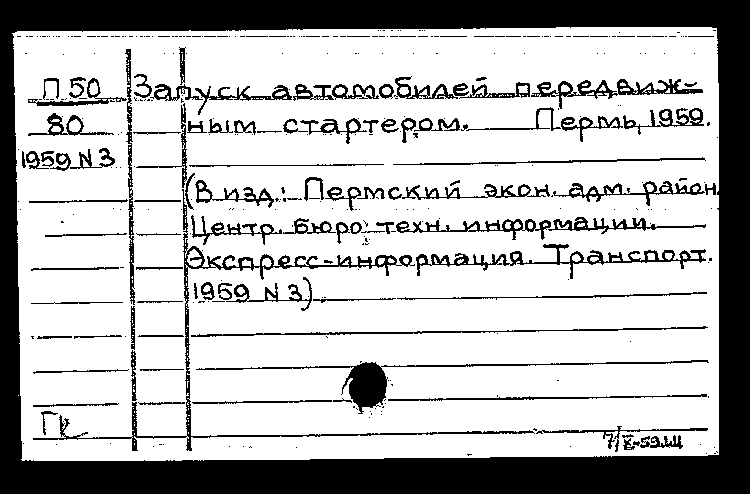 П 50 Запуск автомобилей передвиж-
80 ным стартером. Пермь, 1959.
1959 N 3
(В изд.: Пермский экон. адм. район.
Центр. бюро техн. информации.
Экспресс-информация. Транспорт.
1959 N 3).
Гк